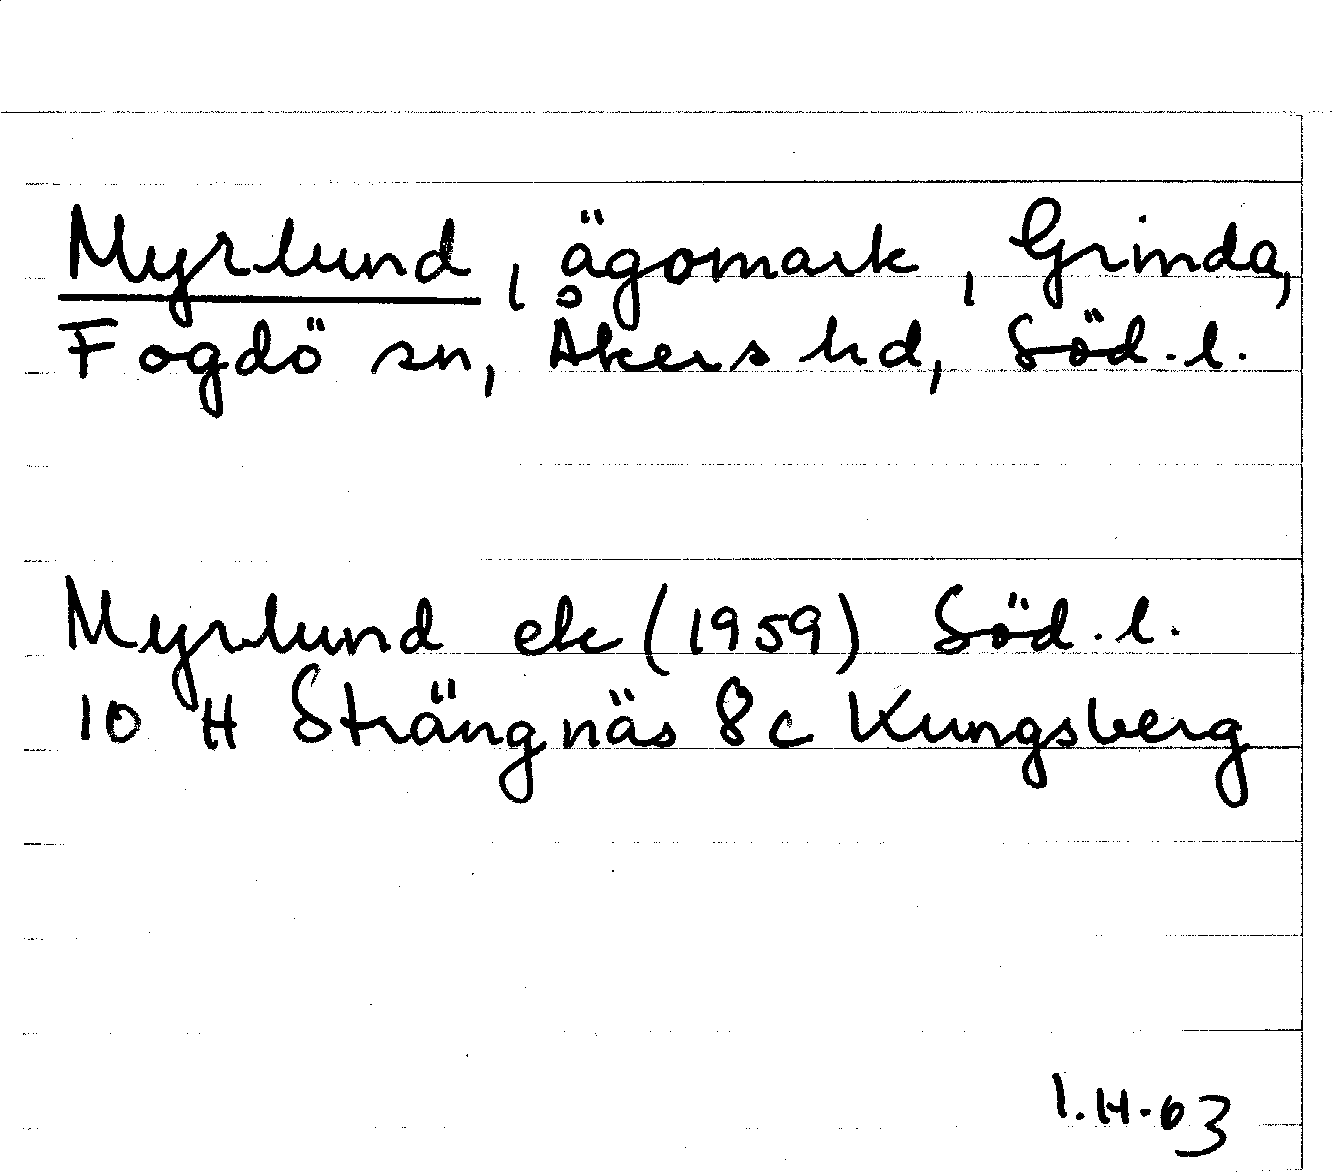 Myrlund, ägomark, Grinda,
Fogdö sn, Åkers hd, Söd.l.
Myrlund ek (1959) Söd.l.
10 H Strängnäs 8c Kungsberg
I.H-63